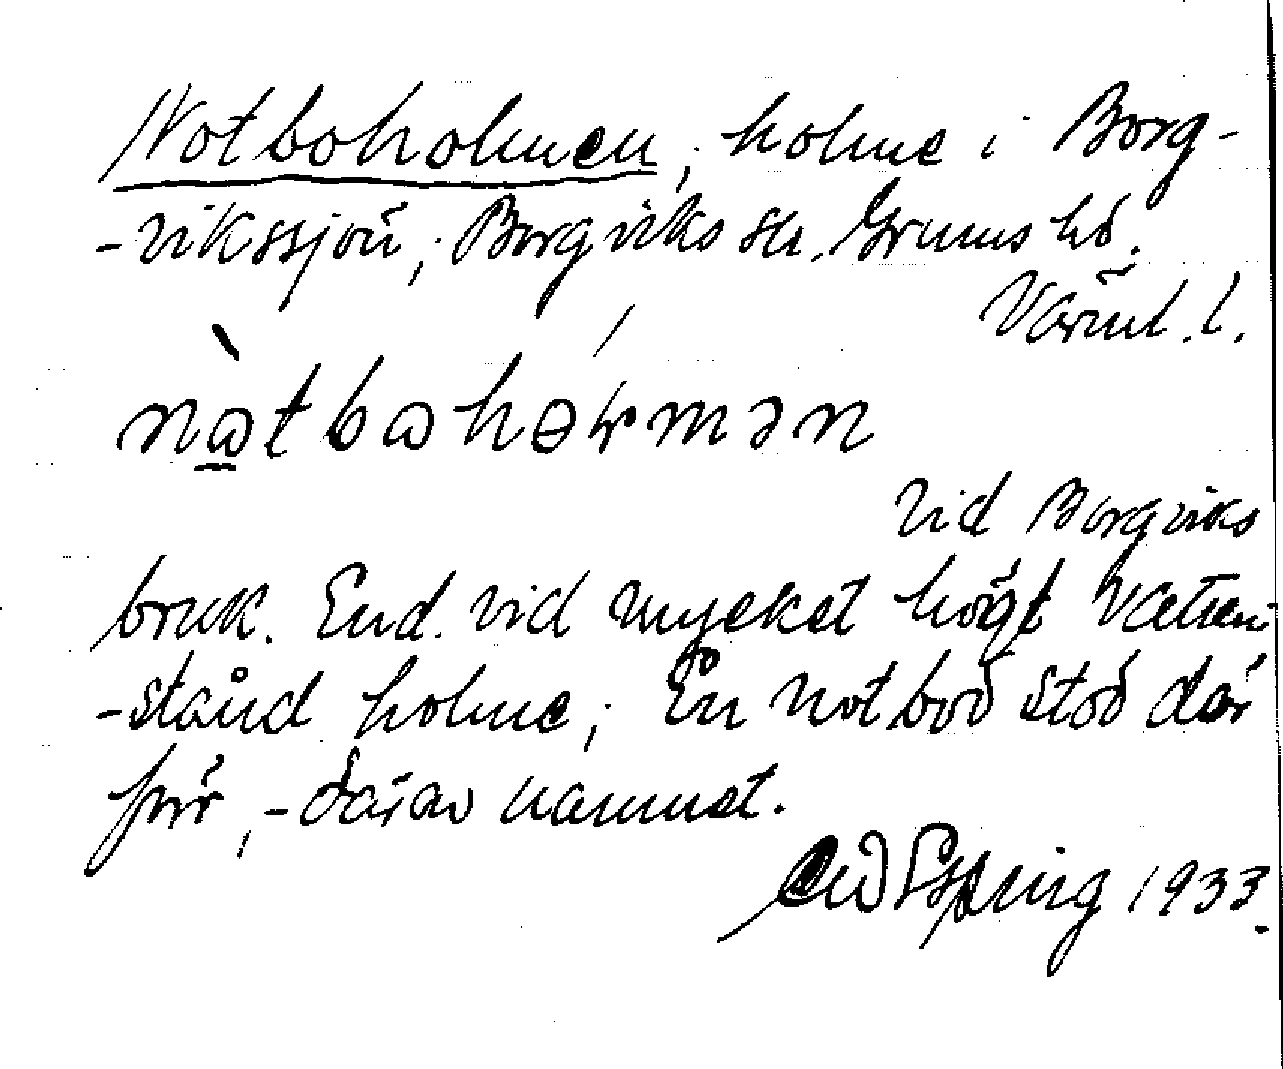 Notboholmen, holme i Borg-
-vikssjön, Borgviks sn. Grums hd.
Värml. l.
nɷ̀tbɷhɵ́rmən
Vid Borgviks
bruk. End. vid mycket högt vatten-
-stånd holme; En notbod stod där
förr, - därav namnet.
Espling 1933.